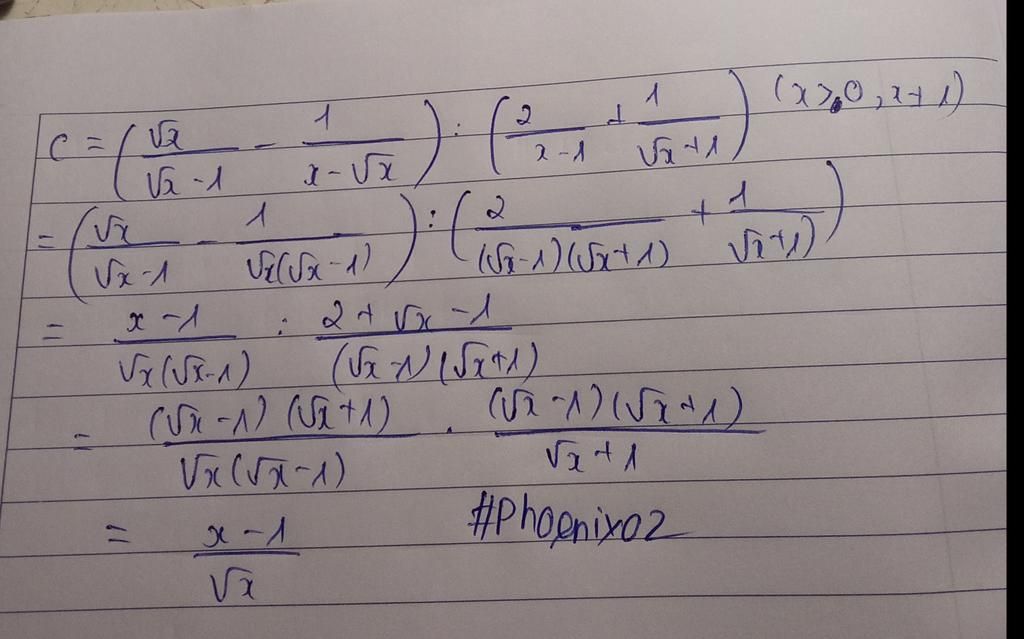 C = (√x/(√x - 1) - 1/(x - √x)) : (2/(x - 1) + 1/(√x + 1)) (x > 0, x ≠ 1)
= (√x/(√x - 1) - 1/(√x(√x - 1))) : (2/((√x - 1)(√x + 1)) + 1/(√x + 1))
= (x - 1)/(√x(√x - 1)) : (2 + √x - 1)/((√x - 1)(√x + 1))
= ((√x - 1)(√x + 1))/(√x(√x - 1)) · ((√x - 1)(√x + 1))/(√x + 1)
= (x - 1)/√x
#Phoenix02